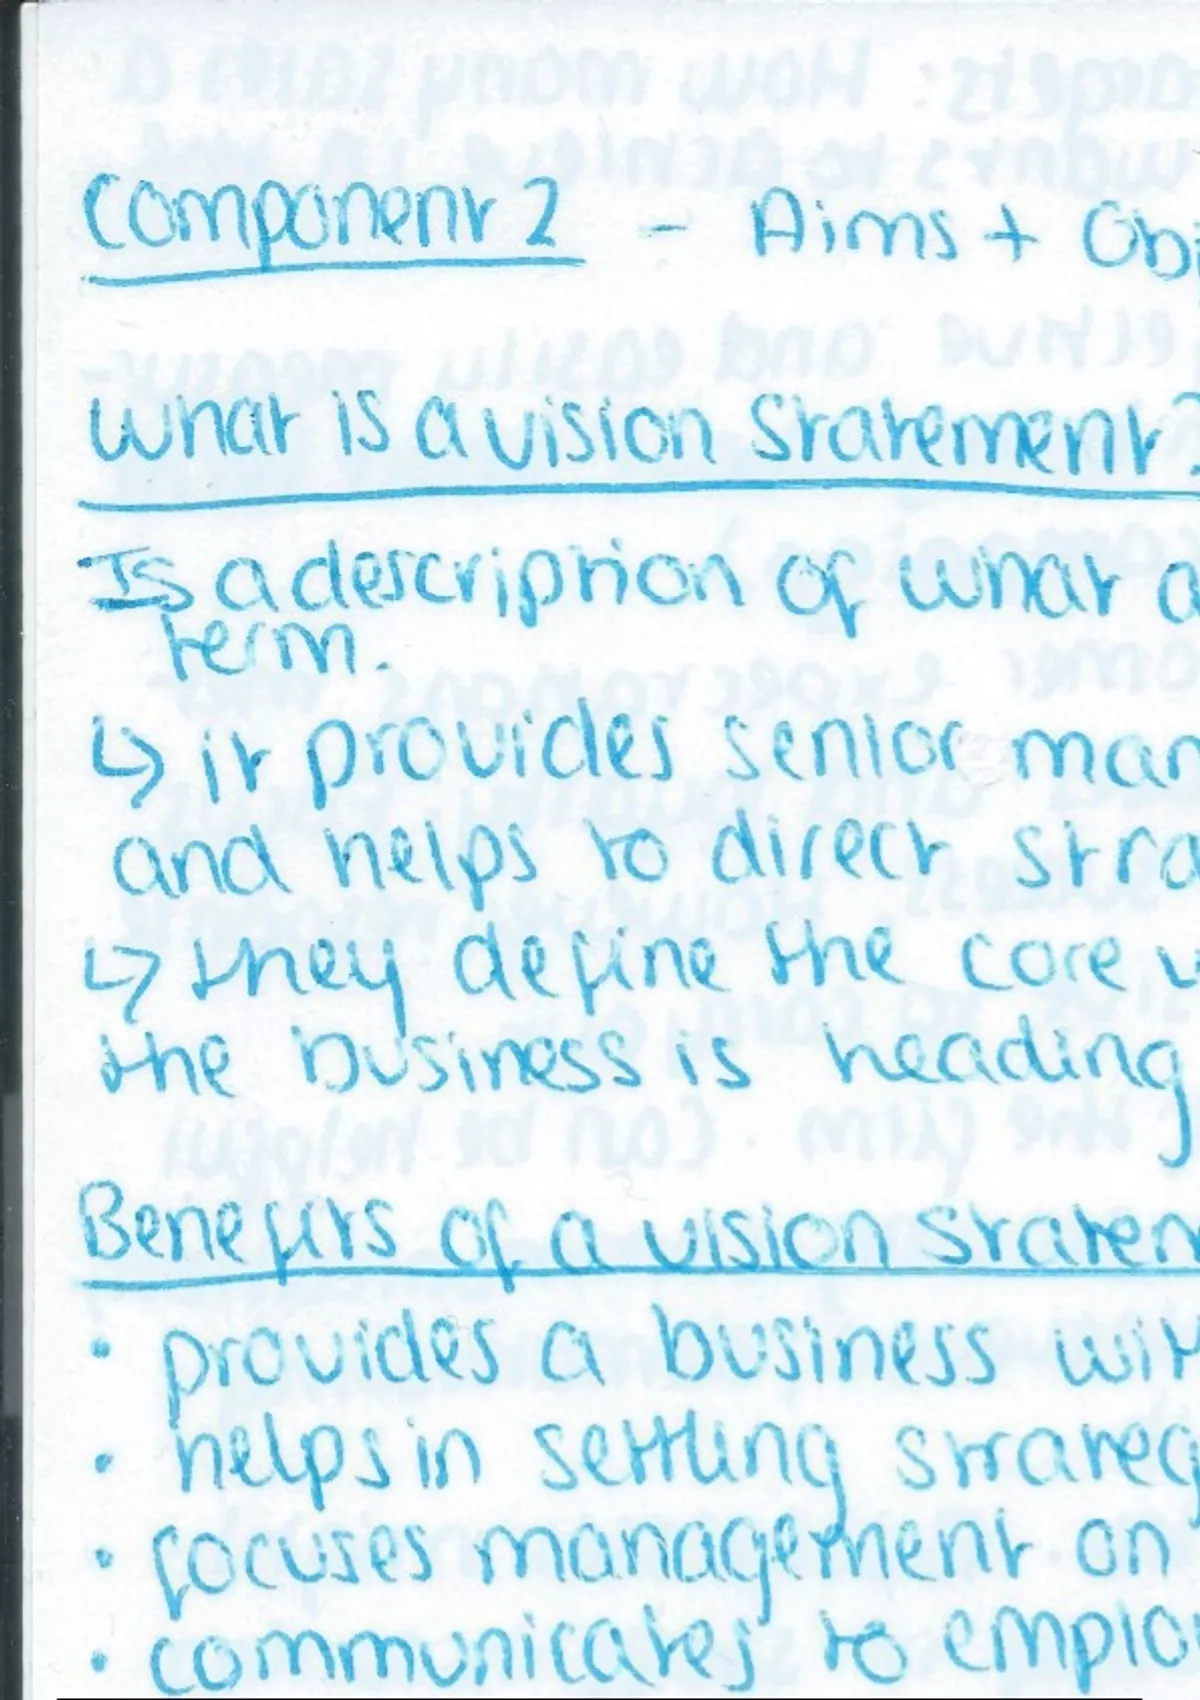 Component 2 - Aims + Obj
What is a vision statement?
Is a description of what a
term.
↳ it provides senior man
and helps to direct stra
↳ they define the core v
the business is heading
Benefits of a vision statem
• provides a business with
• helps in settling strateg
• focuses management on
• communicates to emplo